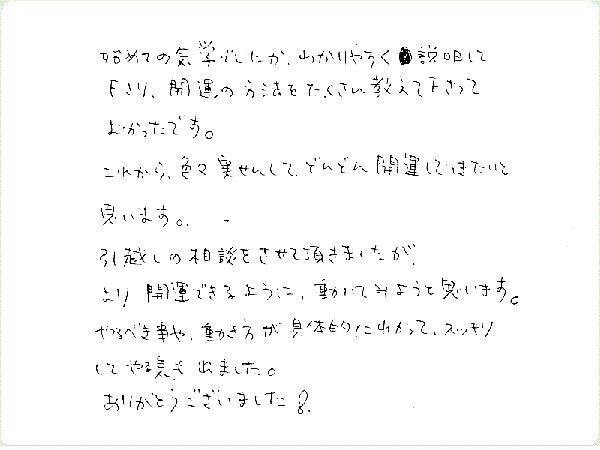 始めての気学でしたが、わかりやすく説明して
下さり、開運の方法をたくさん教えて下さって
よかったです。
これから、色々実せんして、どんどん開運していきたいと
思います。
引越しの相談をさせて頂きましたが、
より開運できるように、動いてみようと思います。
やるべき事や、動き方が具体的にわかって、スッキリ
してやる気も出ました。
ありがとうございました。